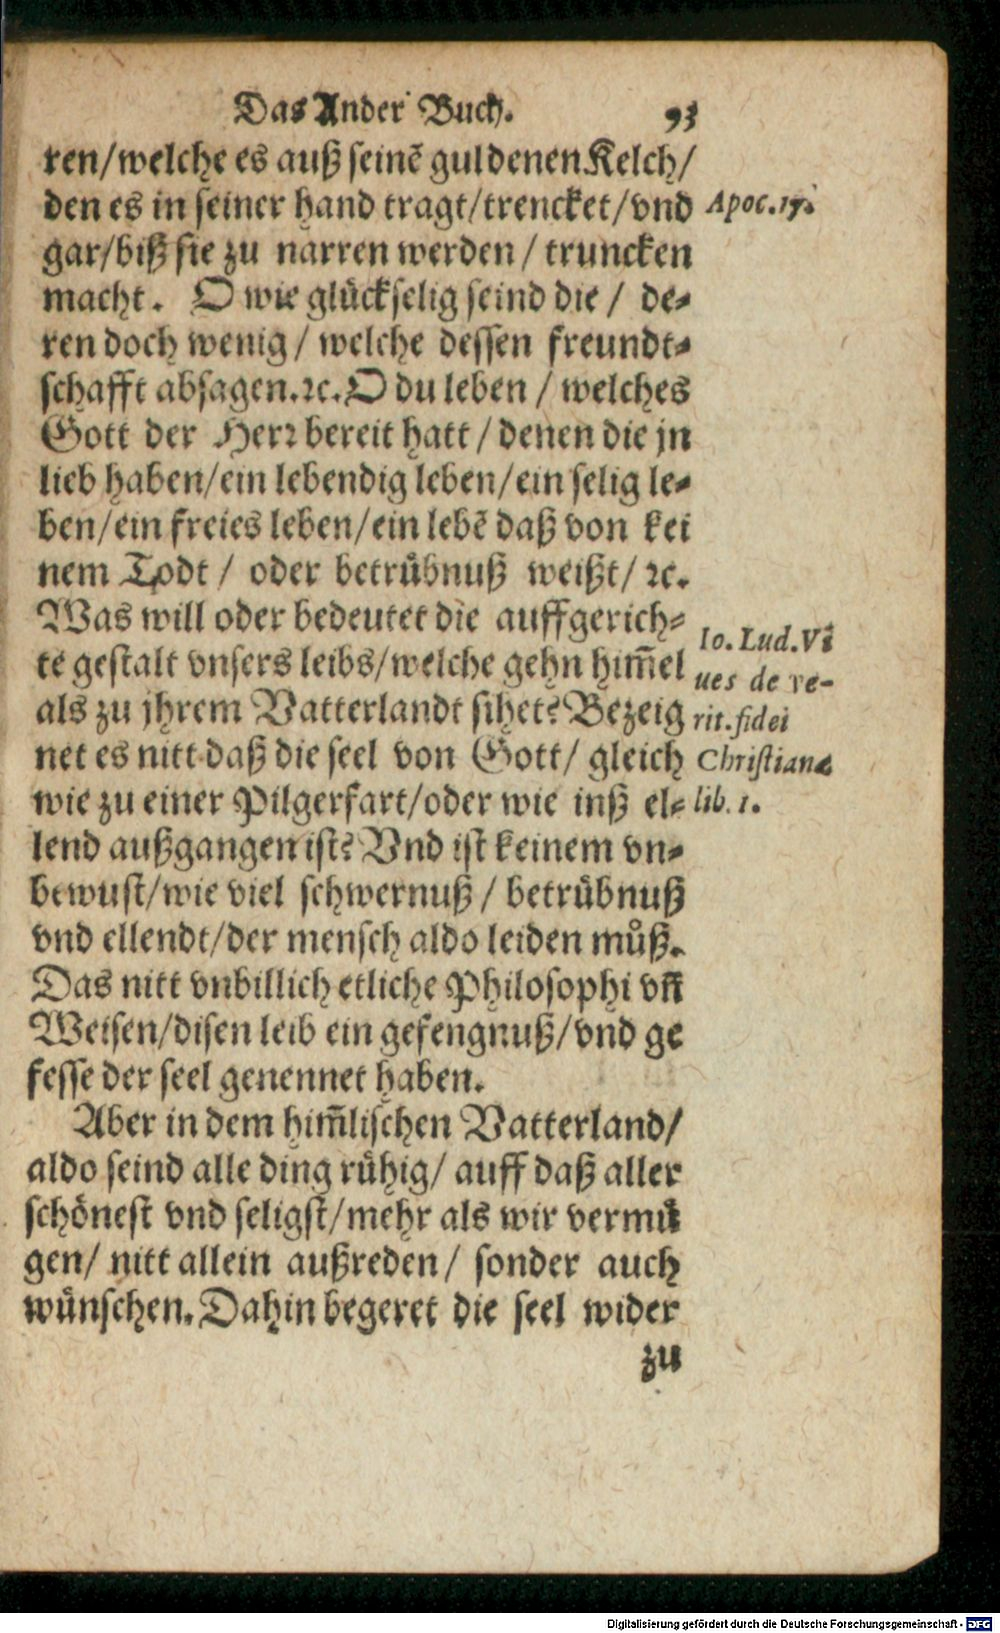 Das Ander Buch. 93
ren/welche es auß seinē guldenen Kelch/
den es in seiner hand tragt/trencket/vnd
Apoc.17.
gar/biß sie zu narren werden/truncken
macht. O wie glückselig seind die/ de-
ren doch wenig/ welche dessen freundt-
schafft absagen.ꝛc.O du leben/ welches
Gott der Herꝛ bereit hatt/denen die jn
lieb haben/ein lebendig leben/ein selig le-
ben/ein freies leben/ein lebē daß von kei
nem Todt/ oder betrübnuß weißt/ ꝛc.
Was will oder bedeutet die auffgerich-
te gestalt vnsers leibs/welche gehn him̄el
als zu jhrem Vatterlandt sihet? Bezeig
net es nitt daß die seel von Gott/ gleich
wie zu einer Pilgerfart/oder wie inß el-
Io. Lud. Vi
ues de ve-
rit. fidei
Christianæ
lib. 1.
lend außgangen ist? Vnd ist keinem vn-
bewust/wie viel schwernuß/ betrübnuß
vnd ellendt/der mensch aldo leiden můß.
Das nitt vnbillich etliche Philosophi vn̄
Weisen/disen leib ein gefengnuß/vnd ge
fesse der seel genennet haben.
Aber in dem him̄lischen Vatterland/
aldo seind alle ding rühig/ auff daß aller
schönest vnd seligst/mehr als wir vermü
gen/ nitt allein außreden/ sonder auch
wünschen. Dahin begeret die seel wider
zu
Digitalisierung gefördert durch die Deutsche Forschungsgemeinschaft - DFG